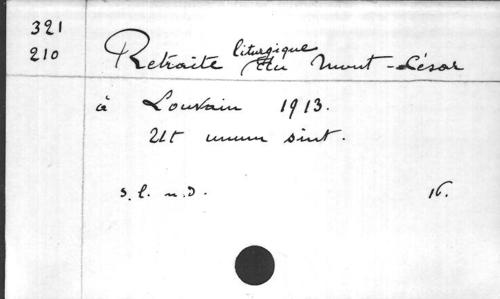 321
210
Retraite liturgique du Mont-César
à Louvain 1913.
Ut unum sint.
s. l. n. d. 16.